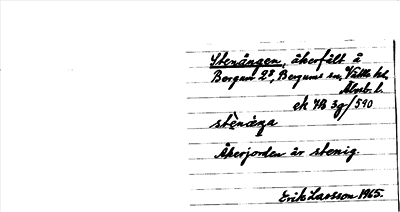 Stenängen, åkerfält å
Bergum 2⁸, Bergums sn, Vättle hd,
Älvsb. l.
ek 7B 3g/590
stènæŋa
Åkerjorden är stenig.
Erik Larsson 1965.